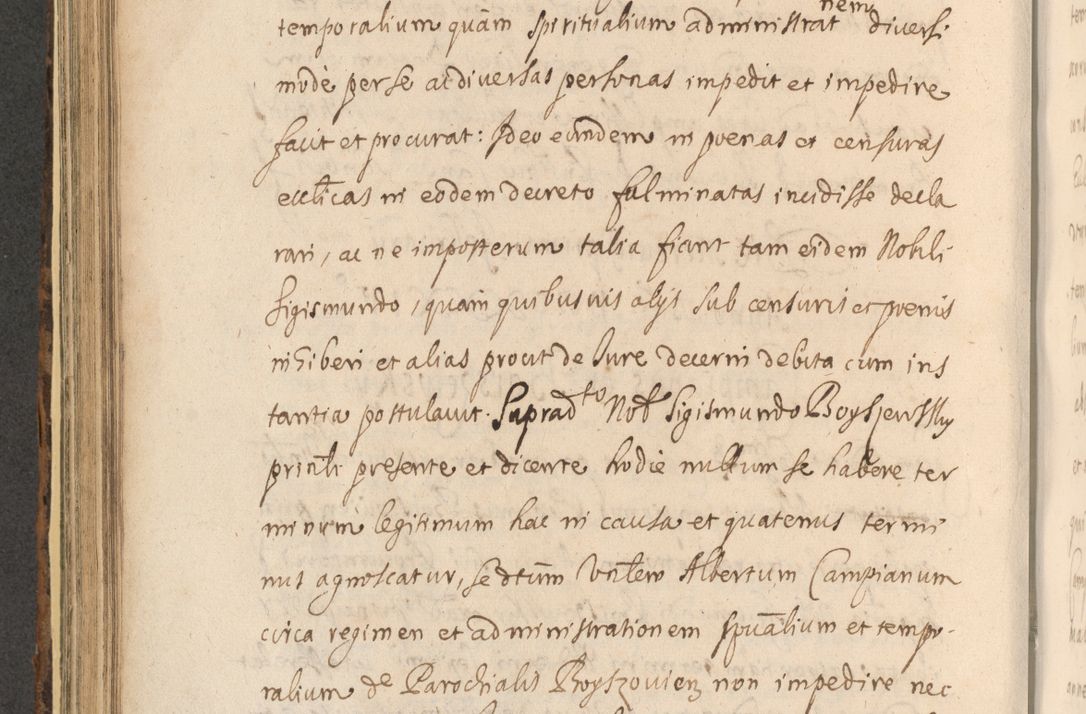 temporalium quàm spiritualium administrat nem diversi
modè per se ac diversas personas impedit et impedire
facit et procurat: Ideo eundem in poenas et censuras
eccl̃icas in eodem decreto fulminatas incidisse decla
rari, ac ne imposterum talia fiant tam eidem Nobili
Sigismundo, quàm quibusvis alijs sub censuris et poenis
inhiberi et alias prout de Iure decerni debita cum ins
tantia postulavit. Supradto Nob̃ Sigismundo Boyszewsky
princ̃li presente et dicente hodie nullum se habere ter
minum legitimum hac in causa et quatenus termi
nus agnoscatur, se dtũm Vnl̃em Albertum Campianum
circa regimen et administrationem spũalium et tempo-
ralium de Parochialis Boyszovien non impedire nec